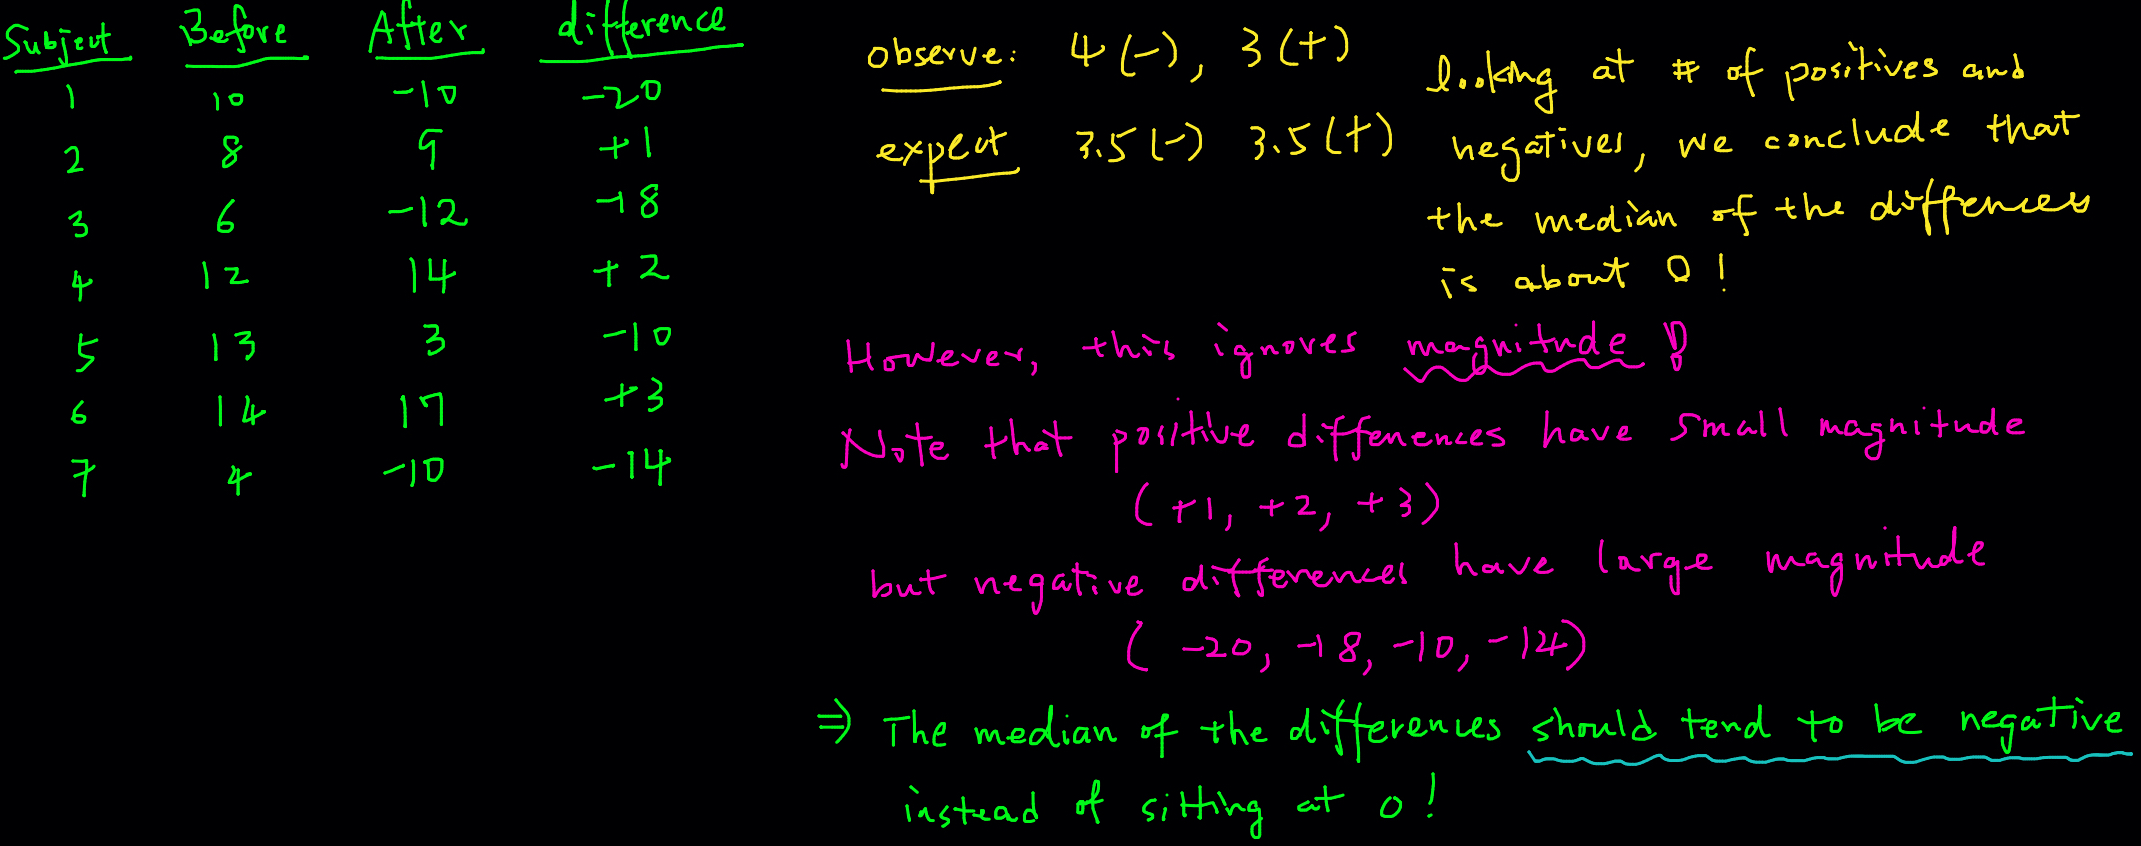 Subject Before After difference
1 10 -10 -20
2 8 9 +1
3 6 -12 -18
4 12 14 +2
5 13 3 -10
6 14 17 +3
7 4 -10 -14
observe: 4 (-), 3 (+)
expect 3.5 (-) 3.5 (+)
looking at # of positives and
negatives, we conclude that
the median of the differences
is about 0 !
However, this ignores magnitude !
Note that positive differences have small magnitude
( +1, +2, +3 )
but negative differences have large magnitude
( -20, -18, -10, -14)
⇒ The median of the differences should tend to be negative
instead of sitting at 0 !